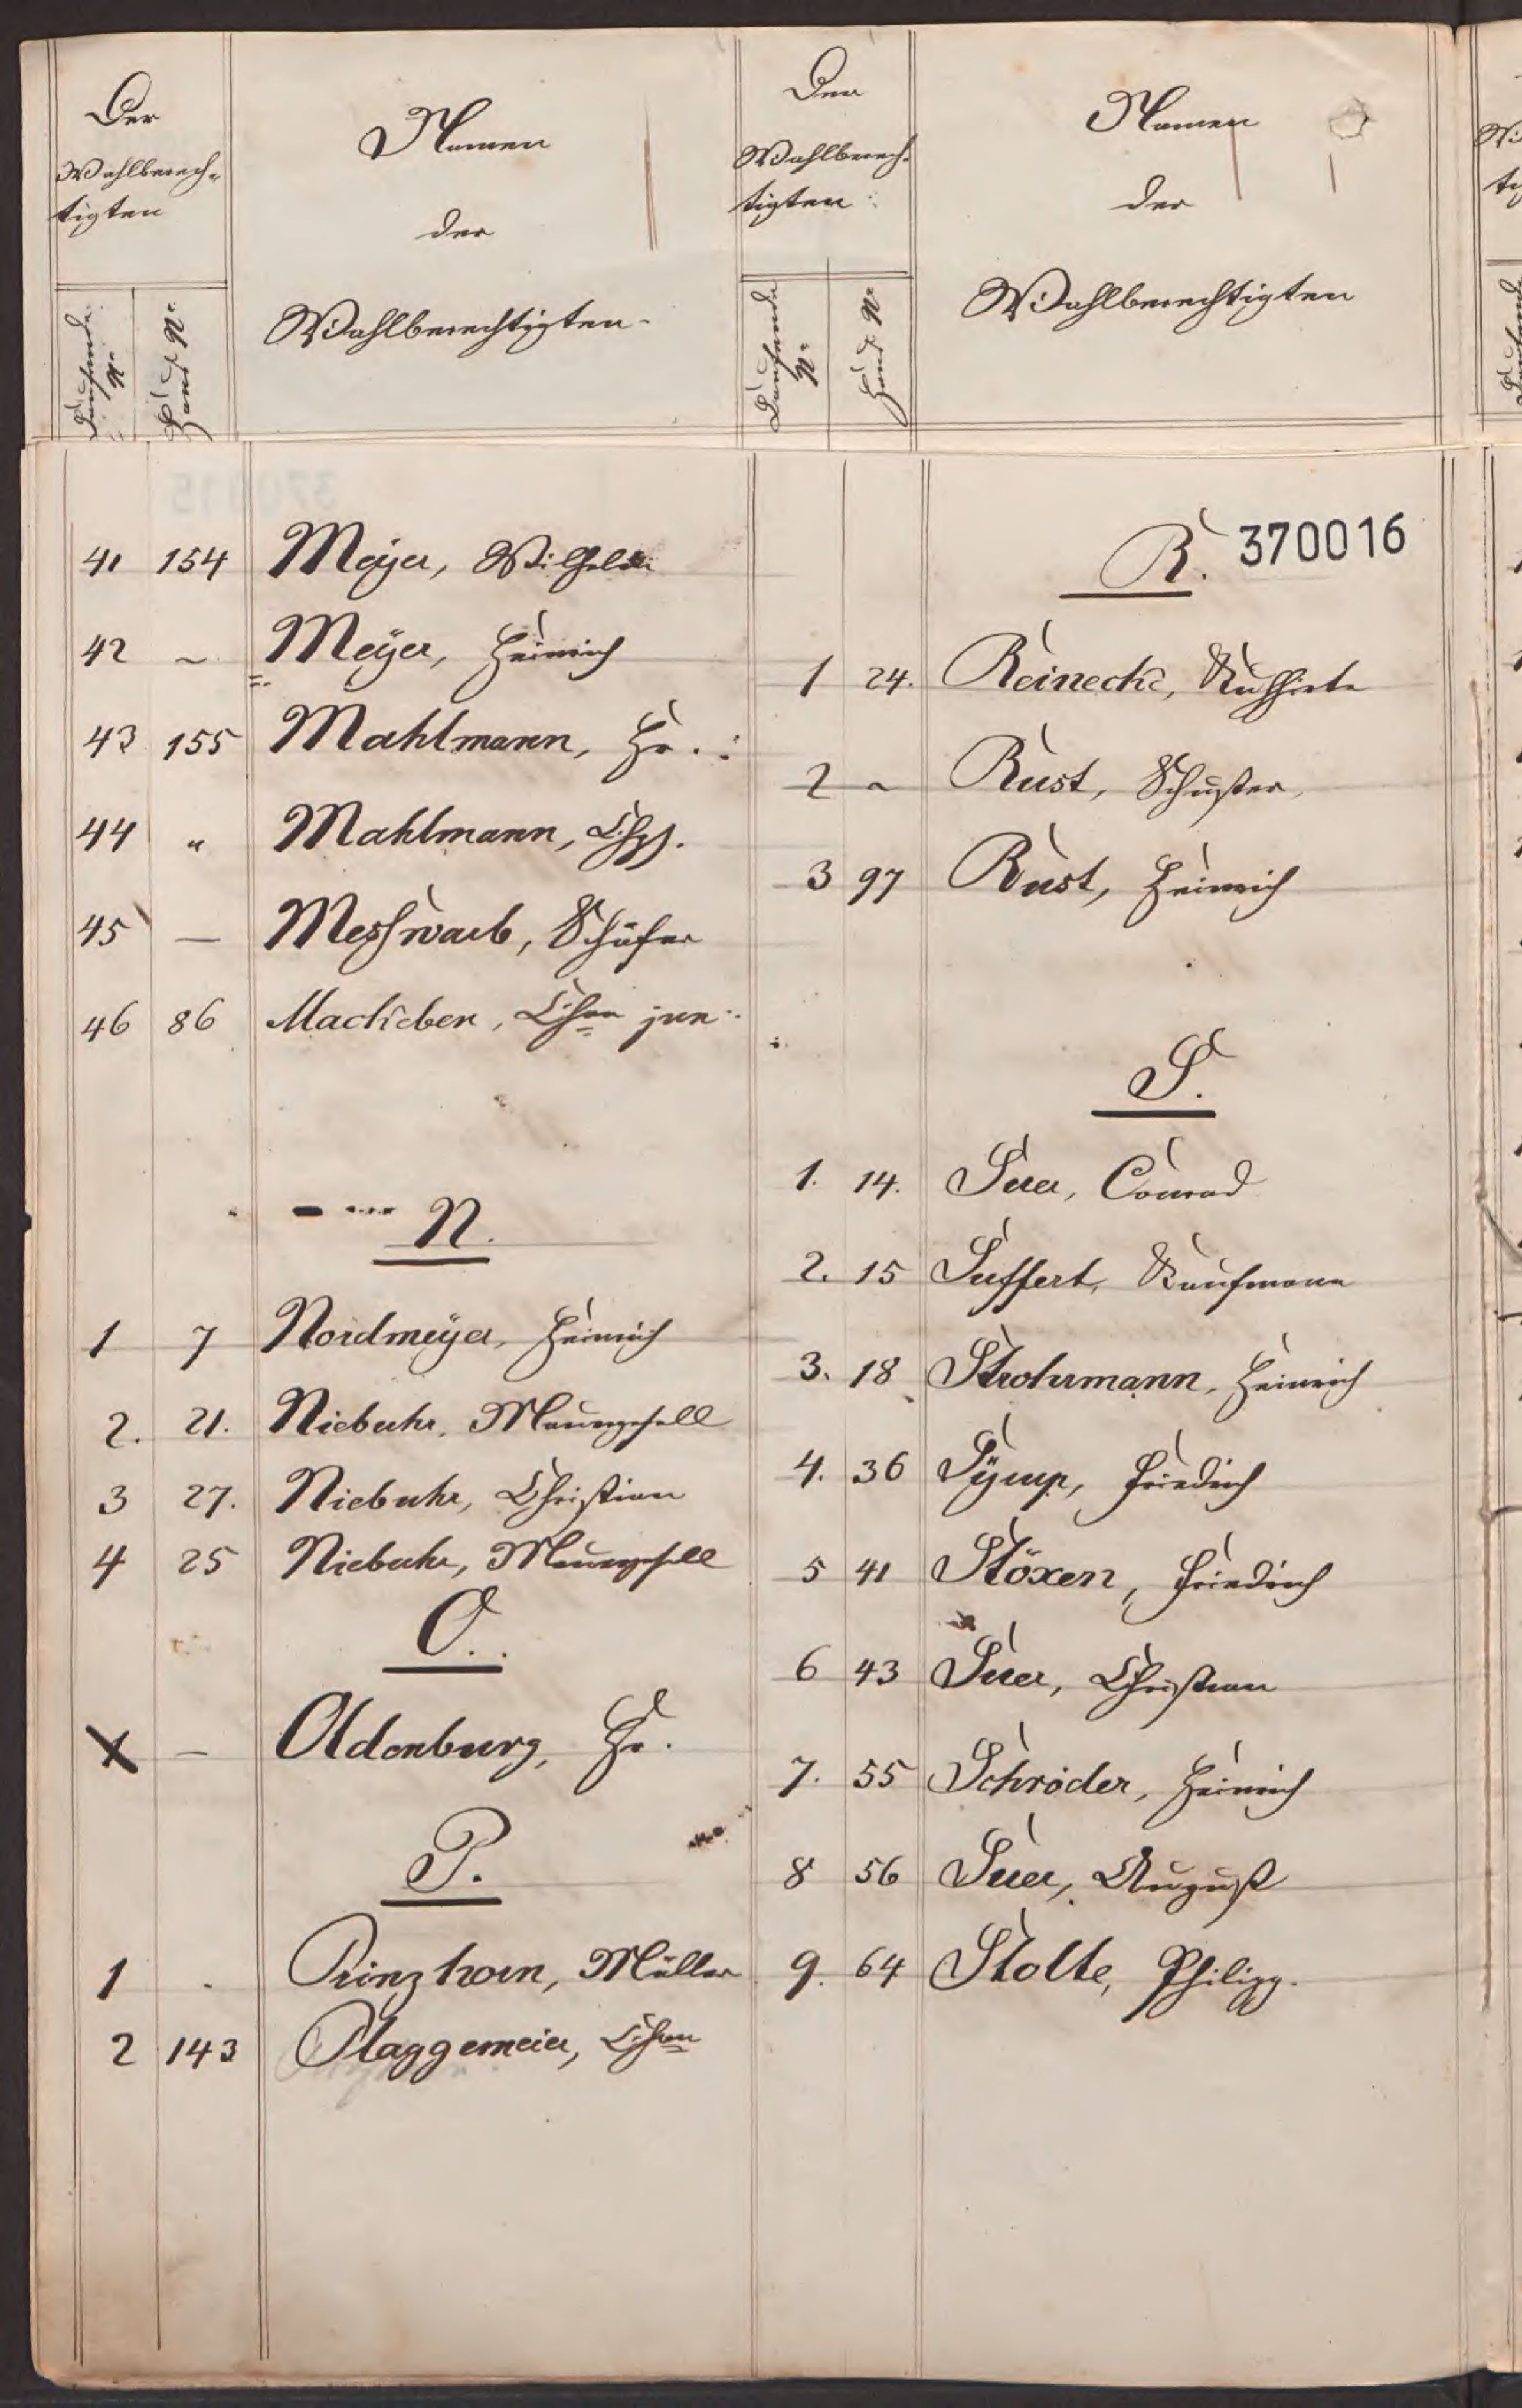 Der
Wahlberech-
tigten
Laufende
No.
Haus No.
Namen
der
Wahlberechtigten.
41 154 Meyer, Wilhelm
42 ~ Meÿer, Heinrich
43 155 Mahlmann, Hr.
44 " Mahlmann, Chr.
45 — Meßwarb, Schäfer
46 86 Machleben, Chr. jun.
N.
1 7 Nordmeÿer, Heinrich
2. 21. Niebuhr, Maurergesell
3 27. Niebuhr, Christian
4 25 Niebuhr, Maurergesell
O.
— Oldenburg, Hr.
P.
1 Prinzhorn, Müller
2 143 Plaggemeier, Chr.
Der
Wahlberech-
tigten
Laufende
No.
Haus No.
Namen
der
Wahlberechtigten
R. 370016
1 24. Reinecke, Kuhhirte
2 ~ Rust, Schuster
3 97 Rust, Heinrich
S.
1. 14. Suer, Conrad
2. 15 Suffert, Kaufmann
3. 18 Strohrmann, Heinrich
4. 36 Friedrich
5 41 Stöxen, Friedrich
6 43 Suer, Christian
7. 55 Schröder, Heinrich
8 56 Suer, August
9. 64 Stolte, Philipp.